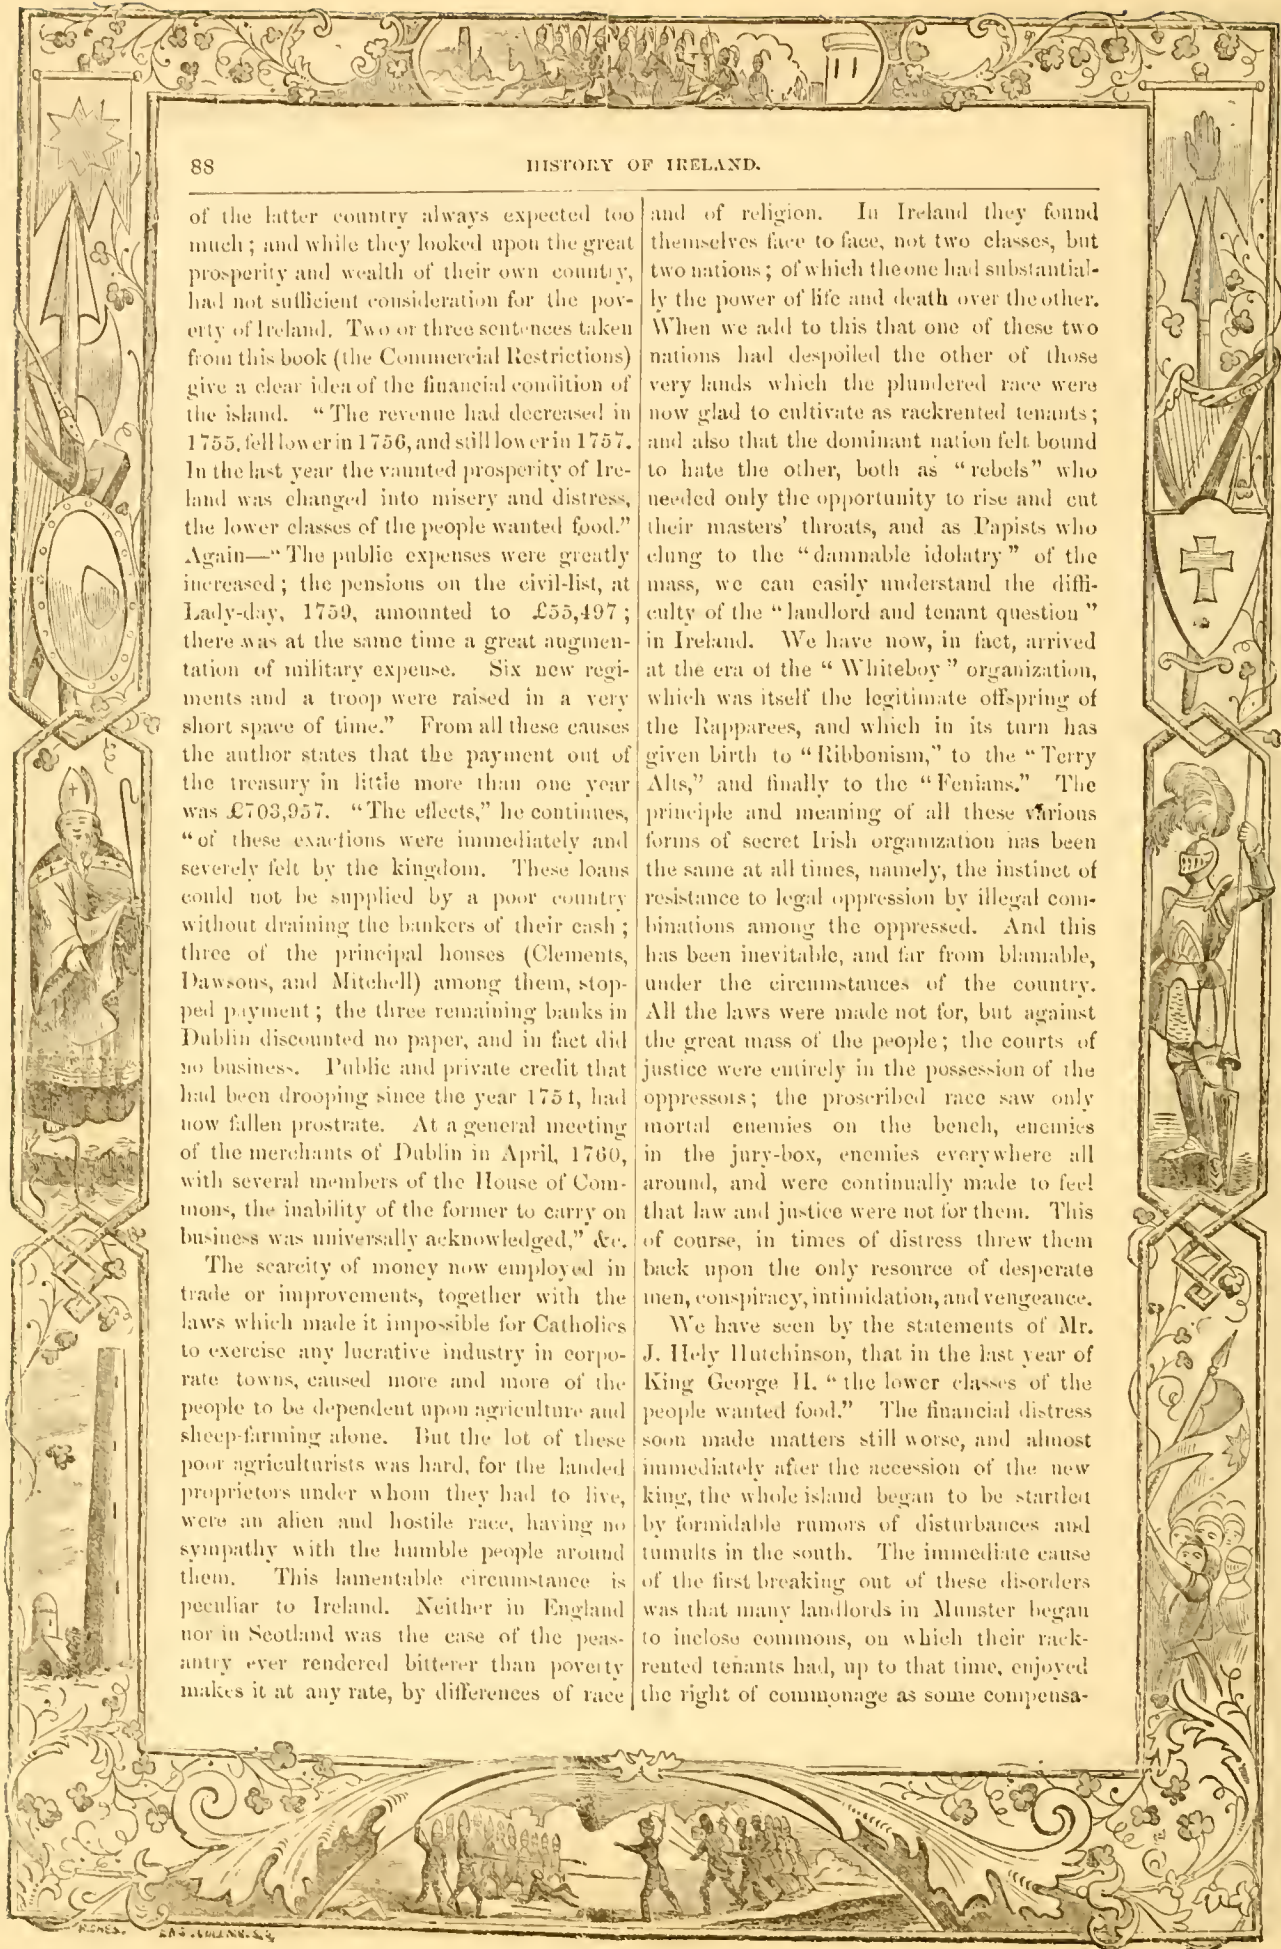 88
HISTORY OF IRELAND.
of the latter country always expected too
much; and while they looked upon the great
prosperity and wealth of their own country,
had not sufficient consideration for the pov-
erty of Ireland. Two or three sentences taken
from this book (the Commercial Restrictions)
give a clear idea of the financial condition of
the island. “The revenue had decreased in
1755, fell lower in 1756, and still lower in 1757.
In the last year the vaunted prosperity of Ire-
land was changed into misery and distress,
the lower classes of the people wanted food.”
Again—“The public expenses were greatly
increased; the pensions on the civil-list, at
Lady-day, 1759, amounted to £55,497;
there was at the same time a great augmen-
tation of military expense. Six new regi-
ments and a troop were raised in a very
short space of time.” From all these causes
the author states that the payment out of
the treasury in little more than one year
was £703,957. “The effects,” he continues,
“of these exactions were immediately and
severely felt by the kingdom. These loans
could not be supplied by a poor country
without draining the bankers of their cash;
three of the principal houses (Clements,
Dawsons, and Mitchell) among them, stop-
ped payment; the three remaining banks in
Dublin discounted no paper, and in fact did
no business. Public and private credit that
had been drooping since the year 1754, had
now fallen prostrate. At a general meeting
of the merchants of Dublin in April, 1760,
with several members of the House of Com-
mons, the inability of the former to carry on
business was universally acknowledged,” &c.
The scarcity of money now employed in
trade or improvements, together with the
laws which made it impossible for Catholics
to exercise any lucrative industry in corpo-
rate towns, caused more and more of the
people to be dependent upon agriculture and
sheep-farming alone. But the lot of these
poor agriculturists was hard, for the landed
proprietors under whom they had to live,
were an alien and hostile race, having no
sympathy with the humble people around
them. This lamentable circumstance is
peculiar to Ireland. Neither in England
nor in Scotland was the case of the peas-
antry ever rendered bitterer than poverty
makes it at any rate, by differences of race
and of religion. In Ireland they found
themselves face to face, not two classes, but
two nations; of which the one had substantial-
ly the power of life and death over the other.
When we add to this that one of these two
nations had despoiled the other of those
very lands which the plundered race were
now glad to cultivate as rackrented tenants;
and also that the dominant nation felt bound
to hate the other, both as “rebels” who
needed only the opportunity to rise and cut
their masters’ throats, and as Papists who
clung to the “damnable idolatry” of the
mass, we can easily understand the diffi-
culty of the “landlord and tenant question”
in Ireland. We have now, in fact, arrived
at the era of the “Whiteboy” organization,
which was itself the legitimate offspring of
the Rapparees, and which in its turn has
given birth to “Ribbonism,” to the “Terry
Alts,” and finally to the “Fenians.” The
principle and meaning of all these various
forms of secret Irish organization has been
the same at all times, namely, the instinct of
resistance to legal oppression by illegal com-
binations among the oppressed. And this
has been inevitable, and far from blamable,
under the circumstances of the country.
All the laws were made not for, but against
the great mass of the people; the courts of
justice were entirely in the possession of the
oppressors; the proscribed race saw only
mortal enemies on the bench, enemies
in the jury-box, enemies everywhere all
around, and were continually made to feel
that law and justice were not for them. This
of course, in times of distress threw them
back upon the only resource of desperate
men, conspiracy, intimidation, and vengeance.
We have seen by the statements of Mr.
J. Hely Hutchinson, that in the last year of
King George II. “the lower classes of the
people wanted food.” The financial distress
soon made matters still worse, and almost
immediately after the accession of the new
king, the whole island began to be startled
by formidable rumors of disturbances and
tumults in the south. The immediate cause
of the first breaking out of these disorders
was that many landlords in Munster began
to inclose commons, on which their rack-
rented tenants had, up to that time, enjoyed
the right of commonage as some compensa-